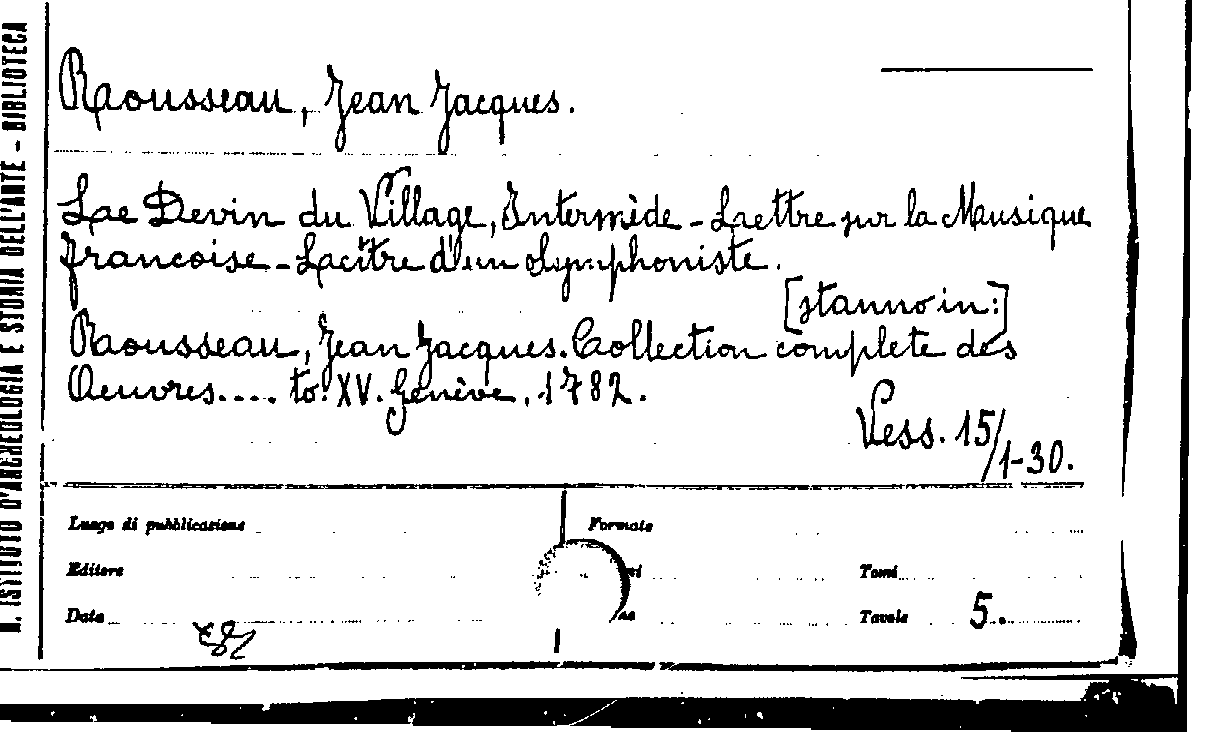 R. ISTITUTO D'ARCHEOLOGIA E STORIA DELL'ARTE - BIBLIOTECA
Rousseau, Jean Jacques.
Le Devin du Village, Intermède - Lettre sur la Musique
françoise - Lettre d'un Symphoniste.
[stanno in:]
Rousseau, Jean Jacques. Collection complete des
Oeuvres.... to. XV. Genève, 1782.
Vess. 15/1-30.
Luogo di pubblicazione Formato
Editore Tomi
Data Tavole 5.